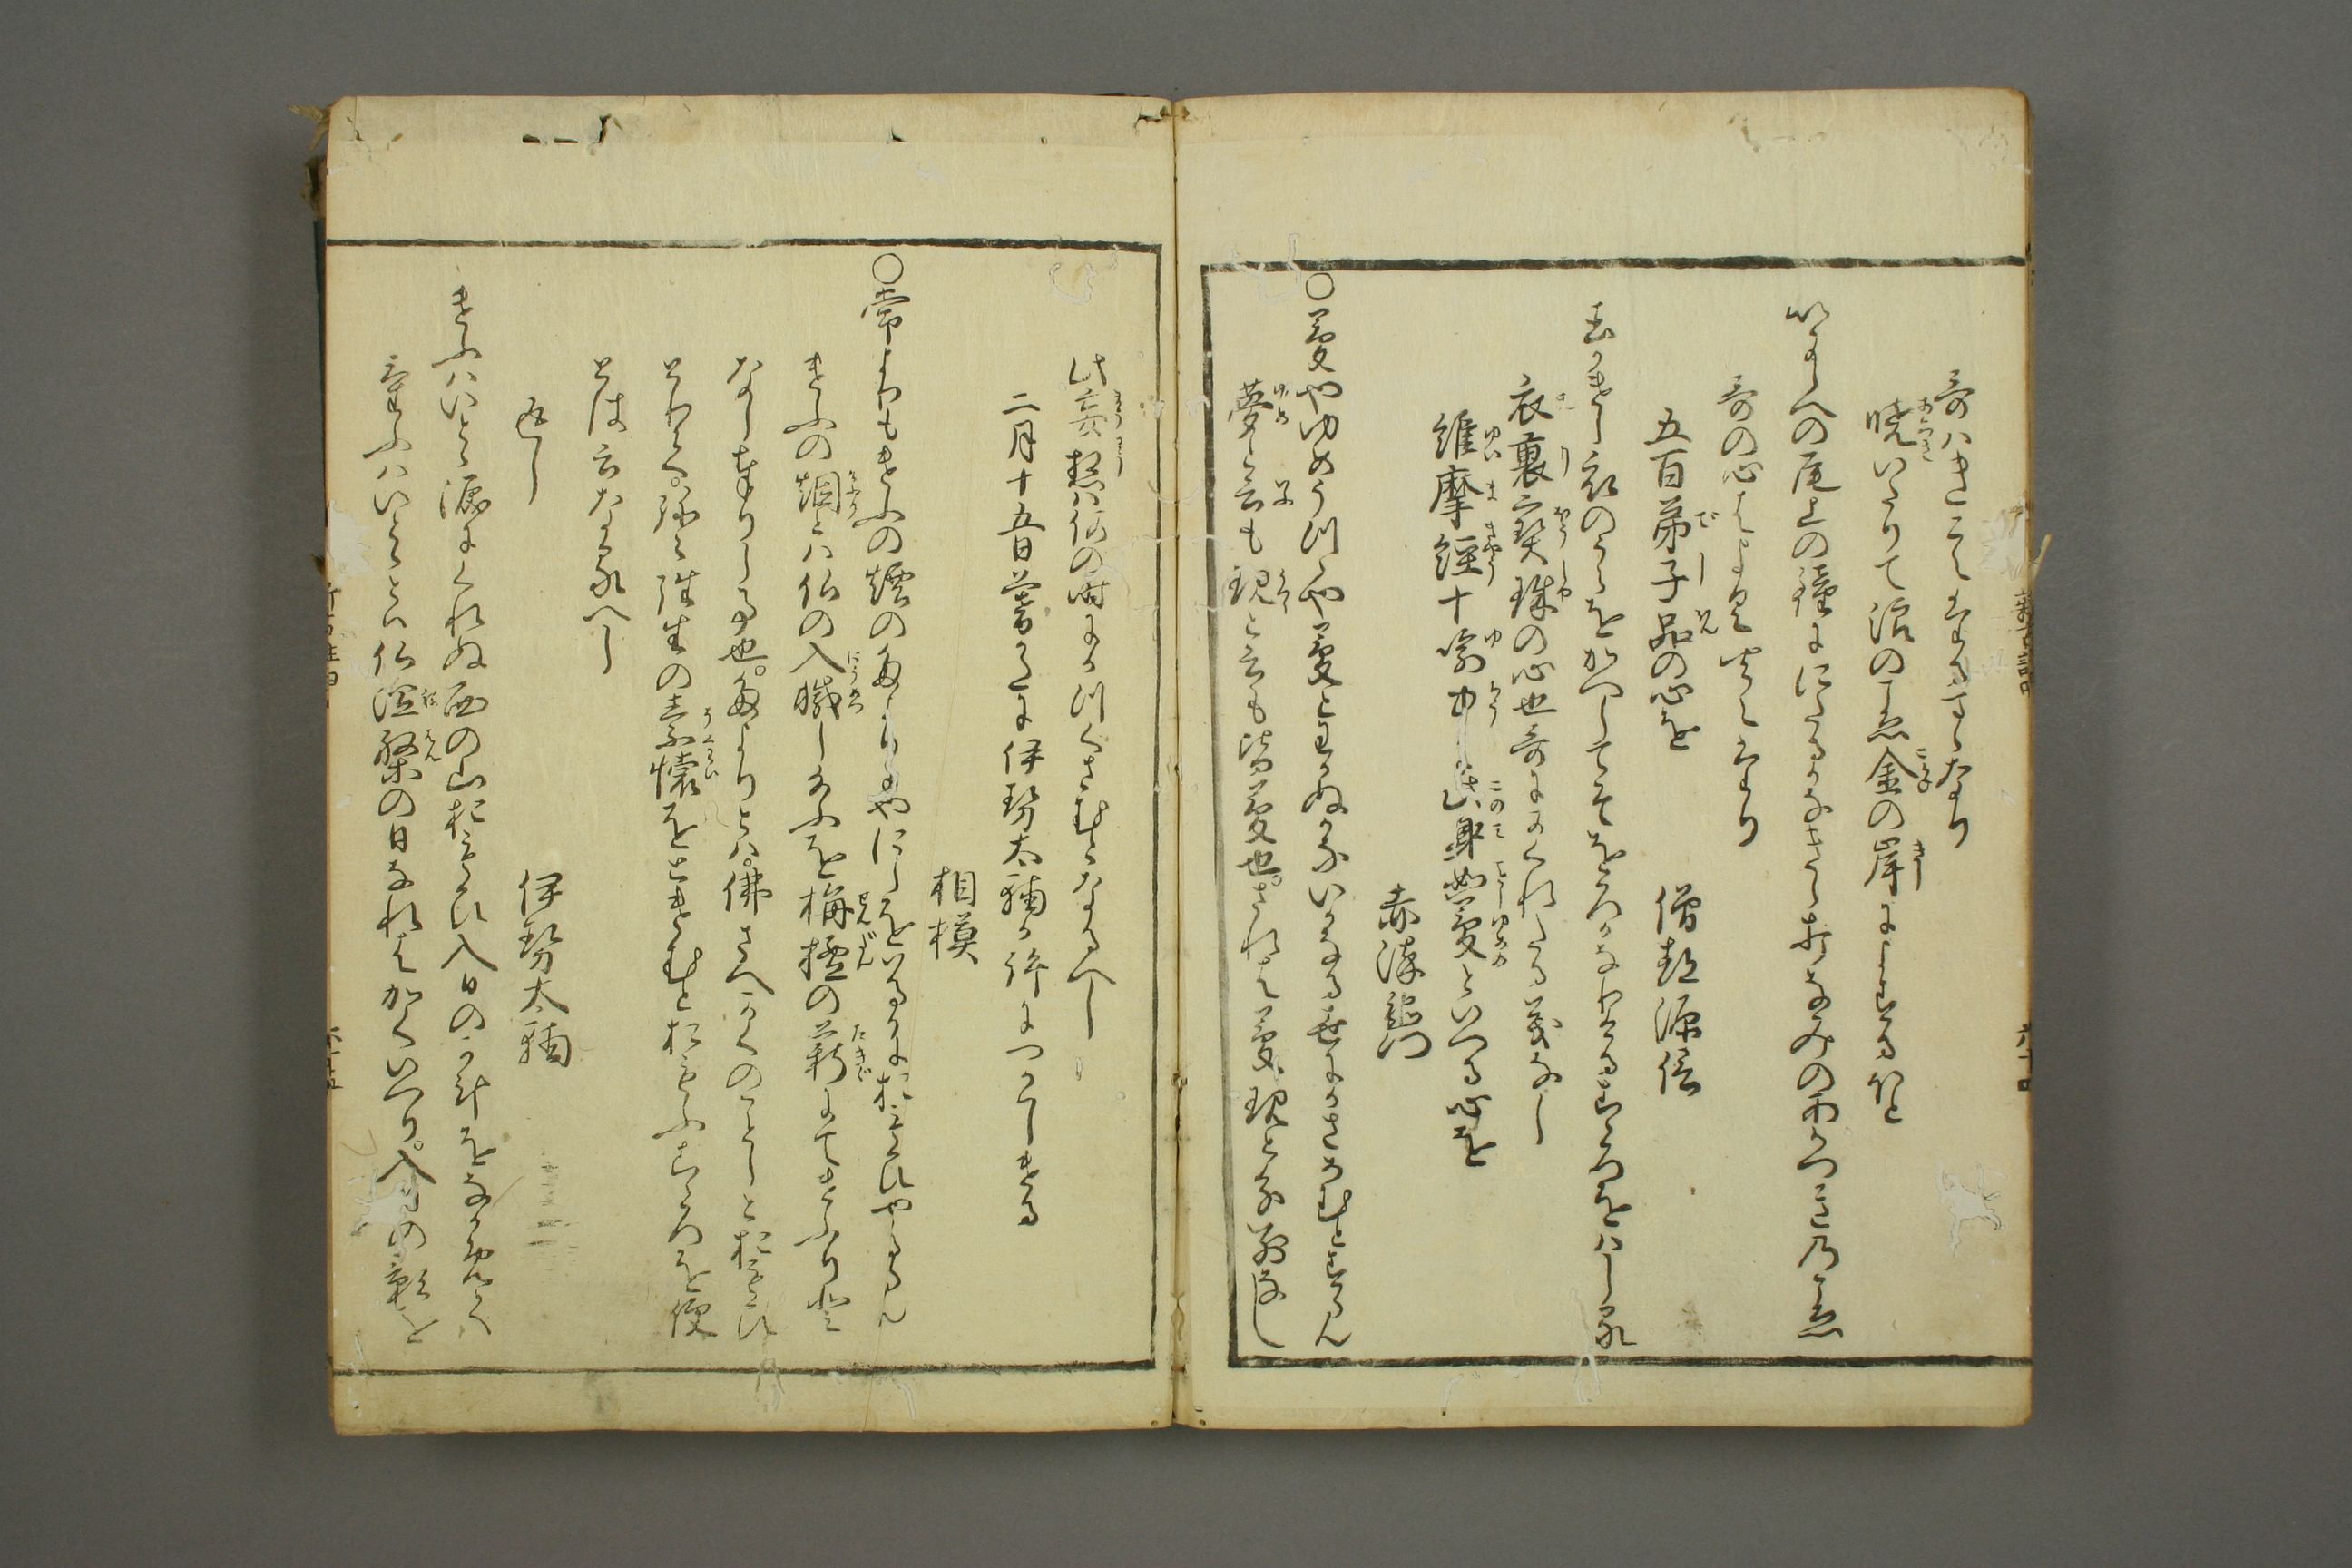 哥はきこえたる事なり
暁いたりて浪のこゑ金の岸によするほと
いにしへの尾上の鐘ににたるかなきしうつなみのあかつきのこゑ
哥の心はよく聞えたり
五百弟子品の心を
僧都源信
玉かけし衣のうらをかへしてそをろかなりけるこゝろをはしる
衣裏宝珠の心也哥にかくれたる義なし
維摩経十喩中に此身如夢といへる心を
赤染衛門
○夢やゆめうつゝや夢とわかぬかないかなる世にかさめむとすらん
夢と云も現と云も皆夢也。されは夢現とわかぬ
此妄想は何の時にかつくさむとなるへし
二月十五日の暮かたに伊勢大輔か許につかはしける
相模
○常よりもけふの煙のたよりにやにしをはるかにおもひやるらん
けふの烟とは仏の入滅し給ふを栴檀の薪にてけふり登
なし奉りし事也。たよりとは。佛さへかくのことしと
とりわく。弥々往生の素懐をとけむとおもふこゝろを便
とは云なるへし
返し
伊勢大輔
けふはいとゝ涙にくれぬ西の山おもひ入日のかけをなかめて
けふはいとゝとは仏涅槃の日なれはかくいへり。入日の影を